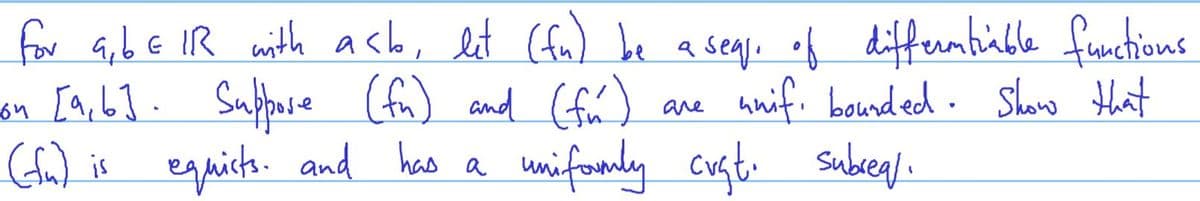 for a,b ∈ IR with a<b, let (fn) be a seq. of differentiable functions
on [a,b]. Suppose (fn) and (fn') are unif. bounded. Show that
(fn) is equicts. and has a uniformly cvgt. subseq.